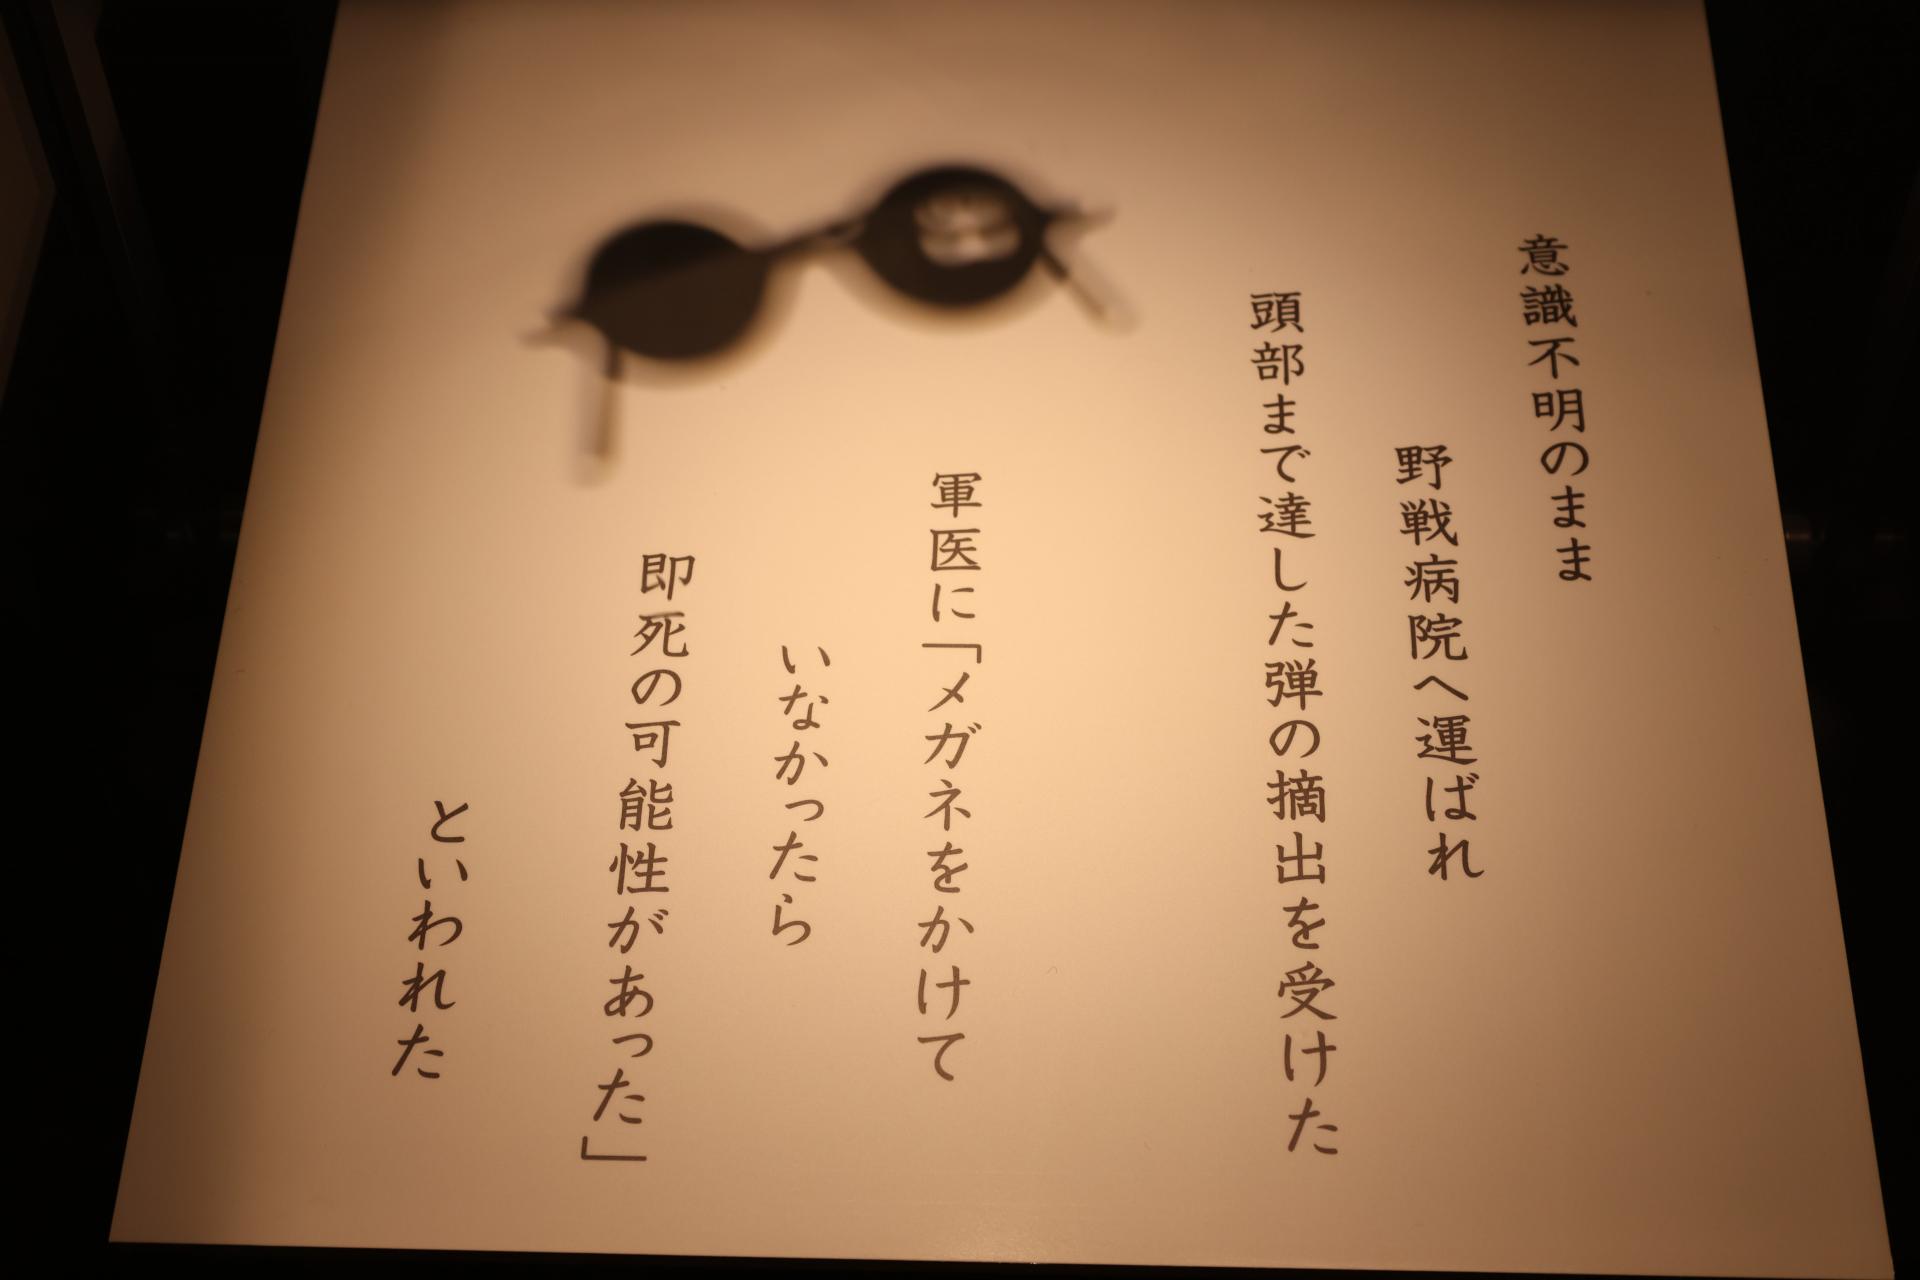 意識不明のまま
野戦病院へ運ばれ
頭部まで達した弾の摘出を受けた
軍医に「メガネをかけて
いなかったら
即死の可能性があった」
といわれた